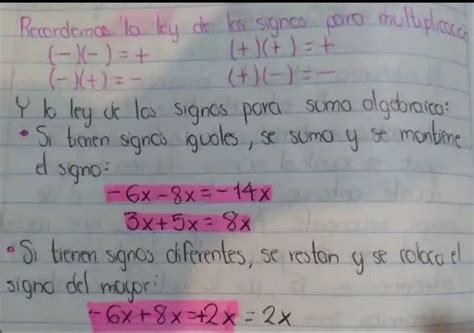 Recordemos la ley de los signos para multiplicación
(-)(-) = + (+)(+) = +
(-)(+) = - (+)(-) = -
Y la ley de los signos para suma algebraica:
• Si tienen signos iguales, se suma y se mantiene
el signo:
-6x-8x=-14x
3x+5x=8x
• Si tienen signos diferentes, se restan y se coloca el
signo del mayor:
-6x+8x=+2x = 2x